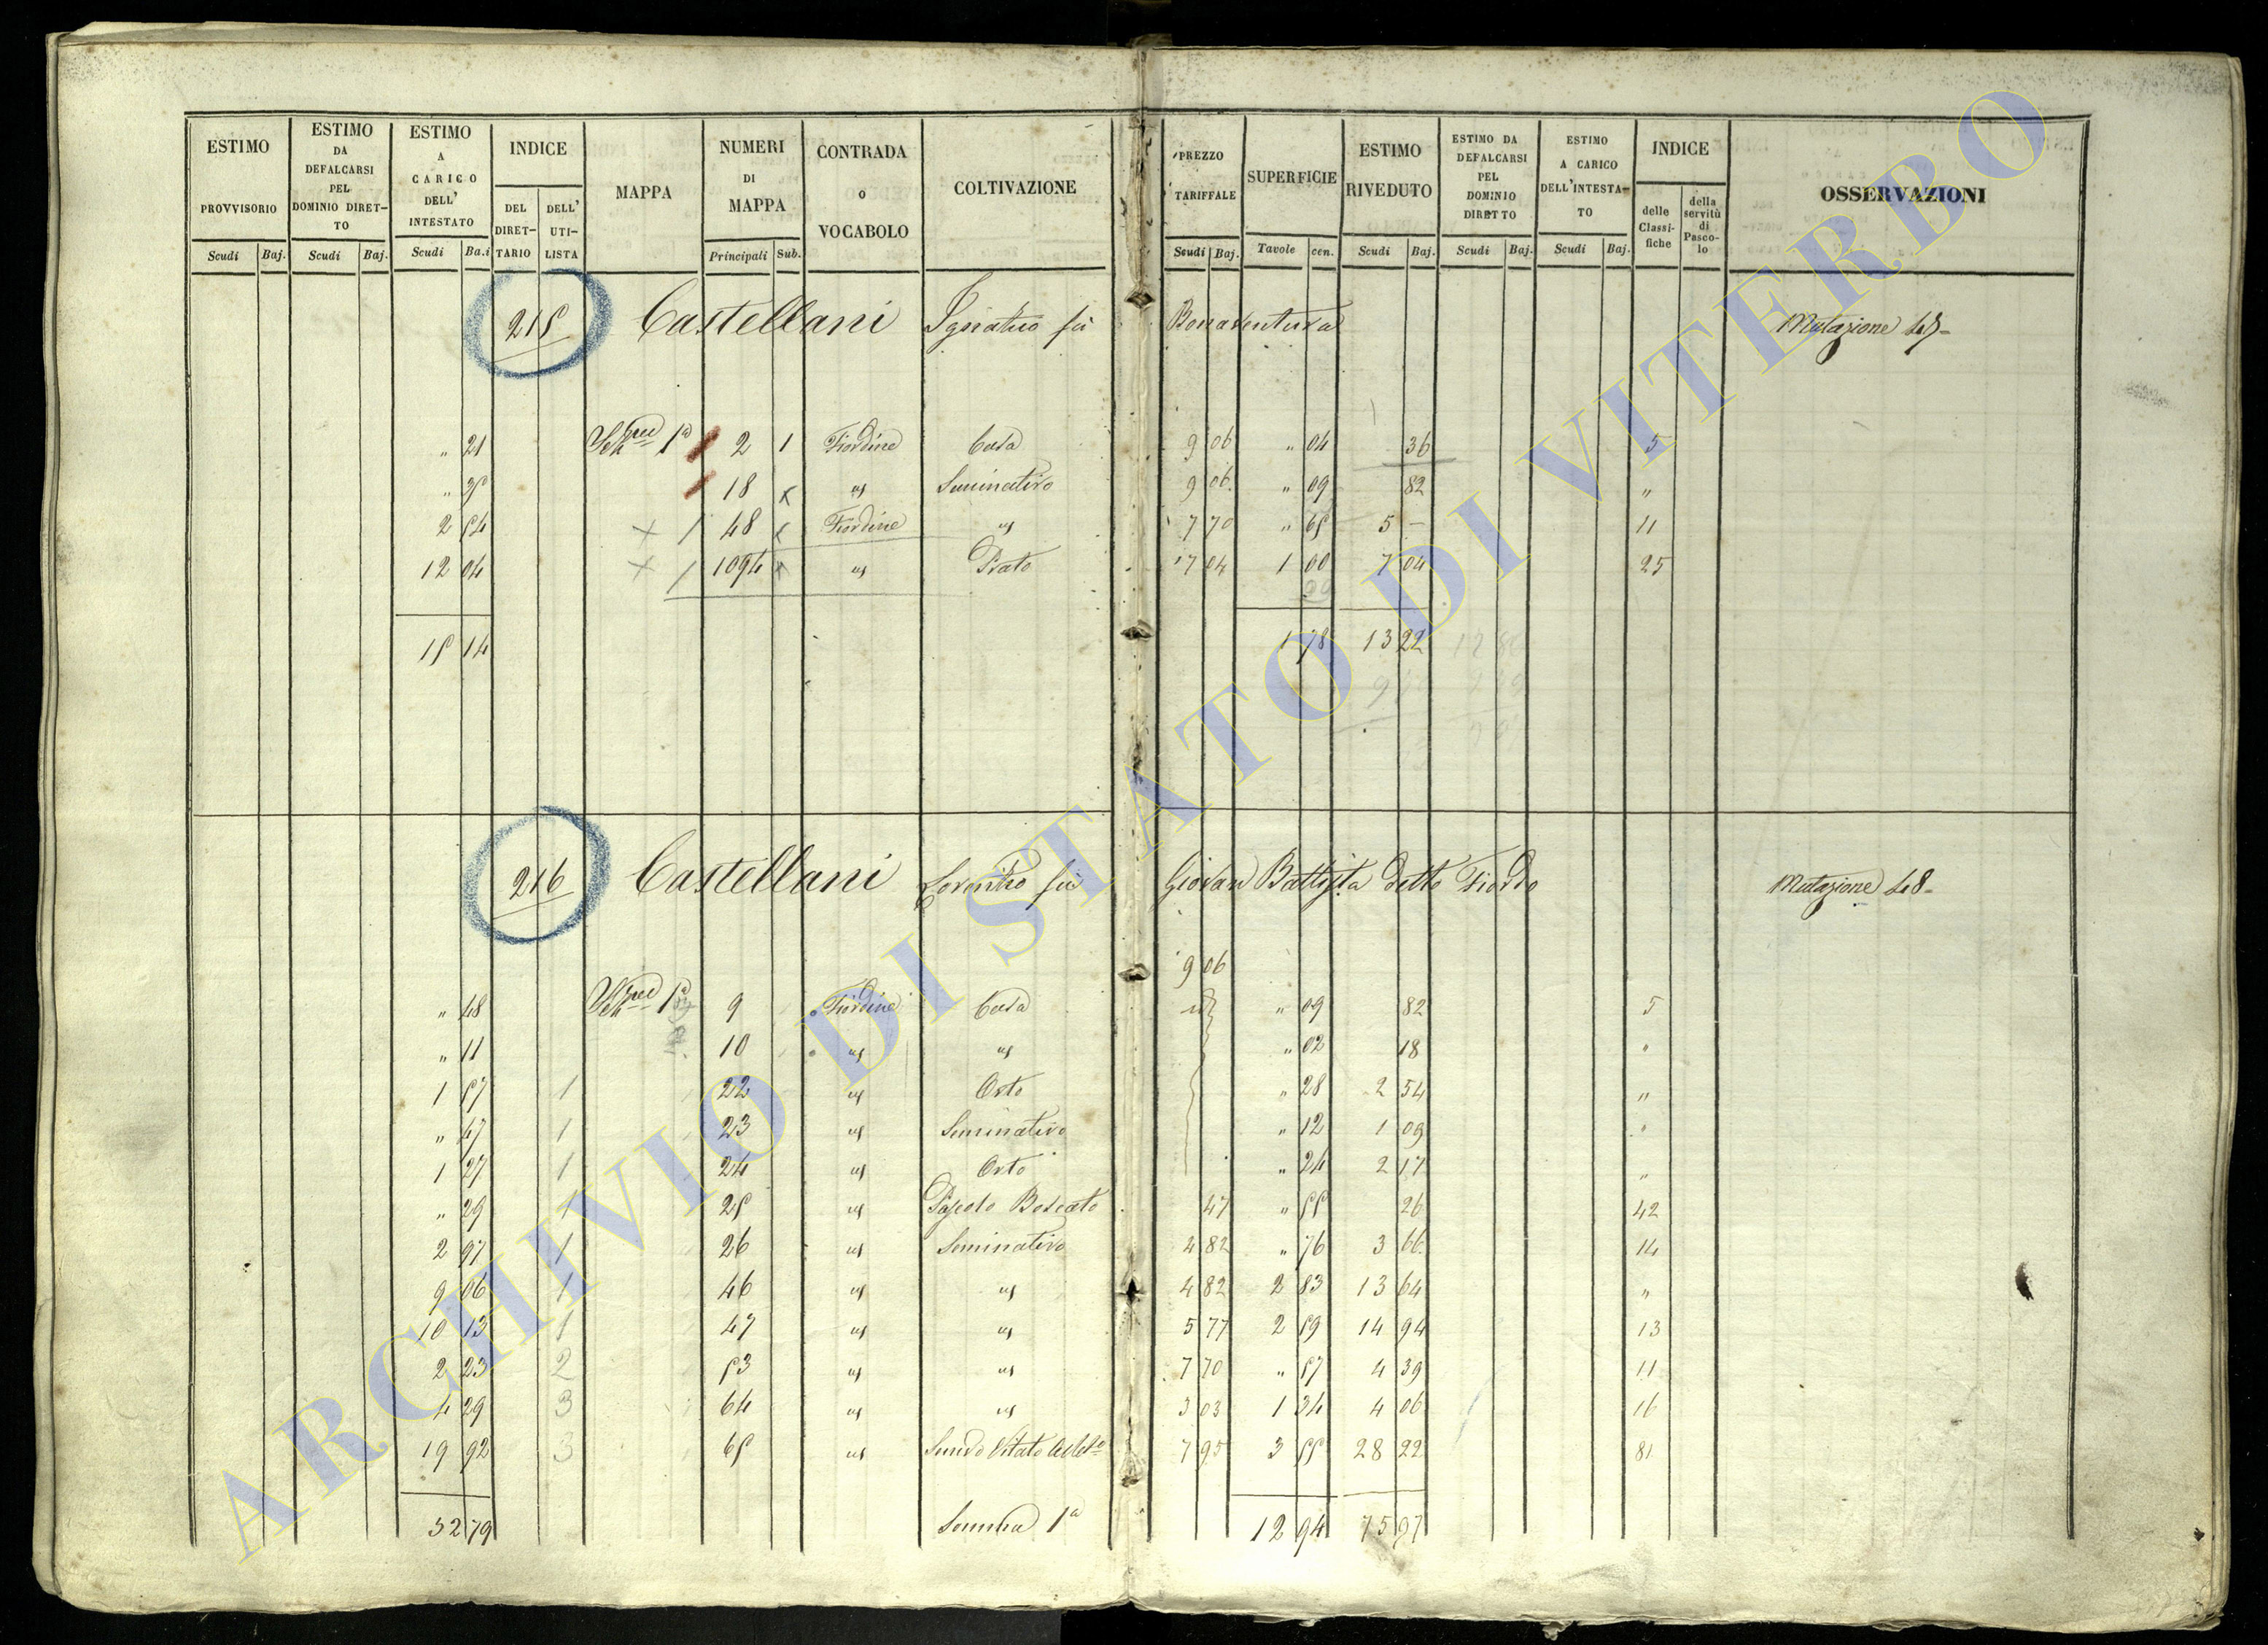 ESTIMO PROVVISORIO | ESTIMO DA DEFALCARSI PEL DOMINIO DIRETTO | ESTIMO A CARICO DELL' INTESTATO | INDICE | MAPPA | NUMERI DI MAPPA | CONTRADA o VOCABOLO | COLTIVAZIONE | PREZZO TARIFFALE | SUPERFICIE | ESTIMO RIVEDUTO | ESTIMO DA DEFALCARSI PEL DOMINIO DIRETTO | ESTIMO A CARICO DELL'INTESTATO | INDICE | OSSERVAZIONI
DEL DIRETTARIO | DELL' UTILISTA | delle Classifiche | della servitù di Pascolo
Scudi Baj. | Scudi Baj. | Scudi Ba.i | Principali Sub. | Scudi Baj. | Tavole cen. | Scudi Baj. | Scudi Baj. | Scudi Baj.
215 Castellani Ignazio fù Bonaventura Mutazione
„ 21 1ª 2 1 Fiordine Casa 9 06 „ 04 36 5
„ 18 „ Seminativo 9 06 „ 09 82 „
2 54 48 Fiordine „ 7 70 „ 65 5 – 11
12 04 1094 „ Prato 7 04 1 00 7 04 25
99
15 14 1 78 13 22
216 Castellani Lorenzo fù Giovan Battista detto Fiordo Mutazione 48
9 06
„ 48 1ª 9 Fiordine Casa „ 09 82 5
„ 11 10 „ „ „ 02 18 „
1 57 1 22 „ Orto „ 28 2 54 „
„ 67 1 23 „ Seminativo „ 12 1 09 „
1 27 1 24 „ Orto „ 24 2 17 „
„ 29 1 25 „ Pascolo Boscato 47 „ 55 26 42
2 97 1 26 „ Seminativo 4 82 „ 76 3 66 14
9 06 1 46 „ „ 4 82 2 83 13 64 „
10 13 1 47 „ „ 5 77 2 59 14 94 13
2 23 2 53 „ „ 7 70 „ 57 4 39 11
4 29 3 64 „ „ 3 03 1 34 4 06 16
19 92 3 65 „ Vitato 7 95 3 55 28 22 81
52 79 Somma 1ª 12 94 75 97
ARCHIVIO DI STATO DI VITERBO